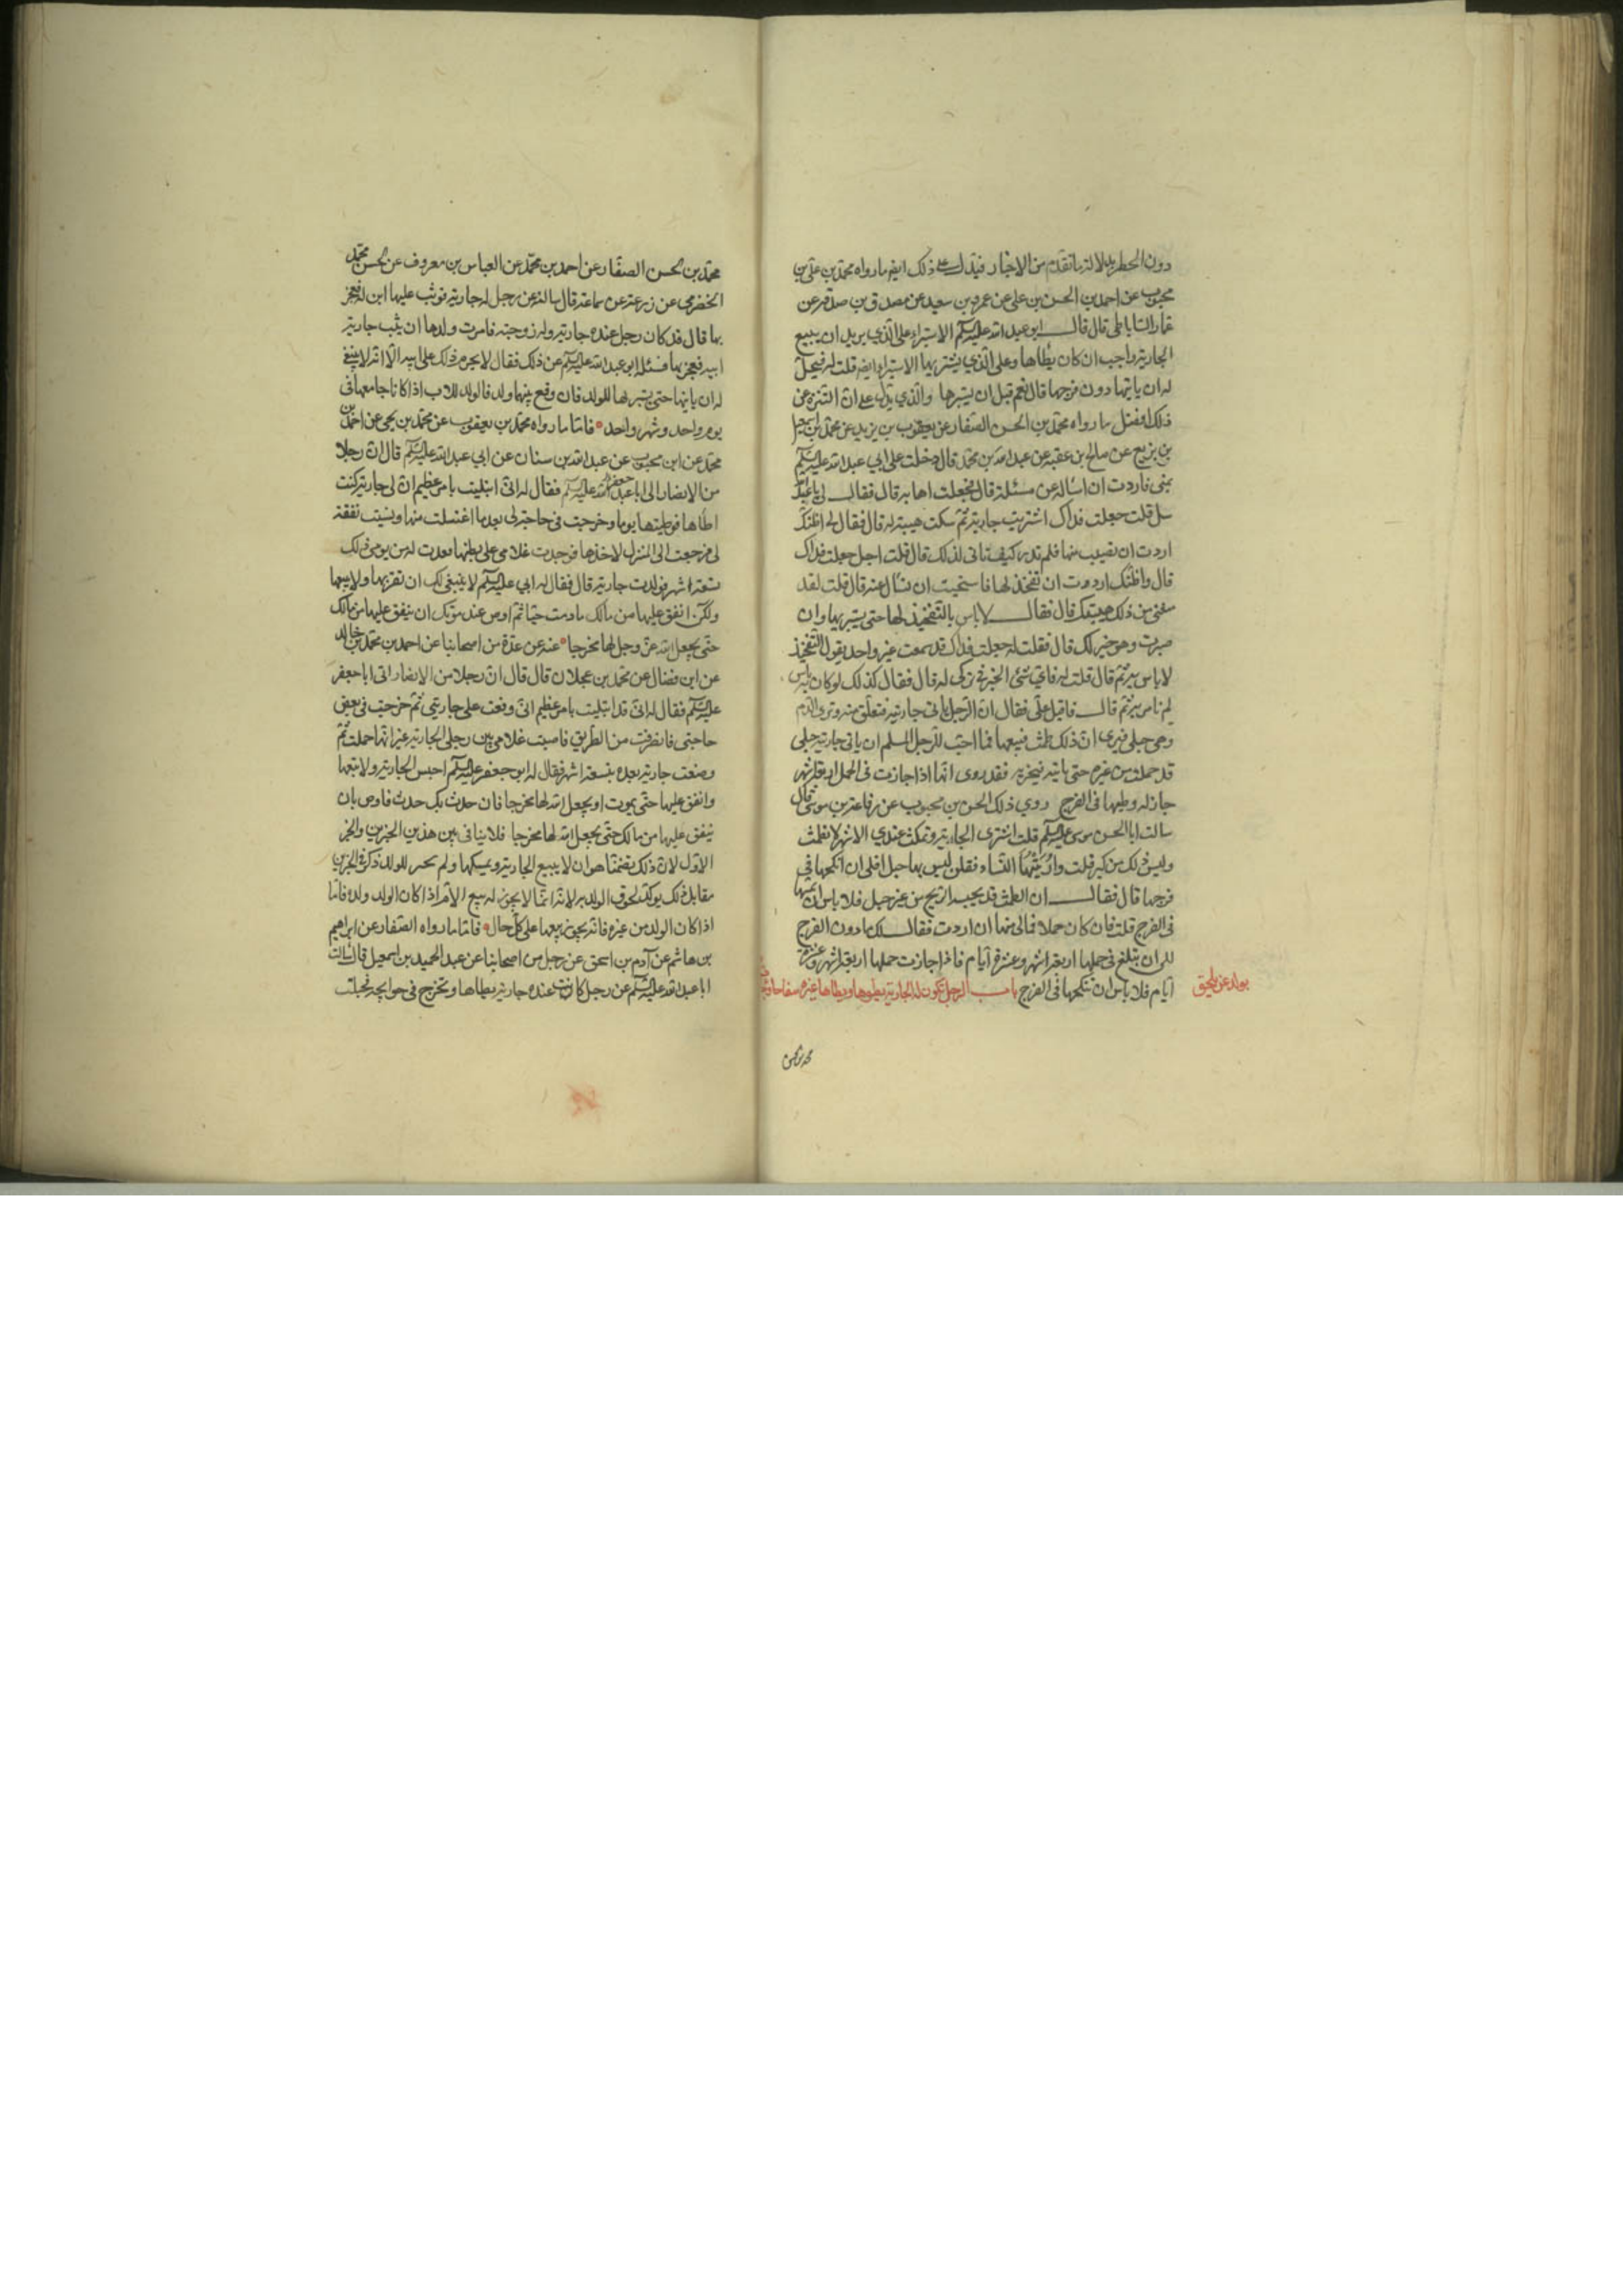 دون الحظر بدلالة ما تقدم من الاخبار فيدل على ذلك ايضا ما رواه محمد بن علي بن
محبوب عن احمد بن الحسن بن علي عن عمرو بن سعيد عن مصدق بن صدقة عن
عمار الساباطي قال قال ابو عبد الله عليه السلم الاستبراء على الذي يريد ان يبيع
الجارية واجب ان كان يطاها وعلى الذي يشتريها الاستبراء ايضا قلت له فيحل
له ان ياتيها دون فرجها قال نعم قبل ان يستبرها والذي يدل على ان التنزه عن
ذلك افضل ما رواه محمد بن الحسن الصفار عن يعقوب بن يزيد عن محمد بن اسمعيل
بن بزيع عن صالح بن عقبة عن عبد الله بن محمد قال دخلت على ابي عبد الله عليه السلم
بمنى فاردت ان اساله عن مسئلة قال فجعلت اهابه قال فقال لي يا عبد الله
سل قلت جعلت فداك اشتريت جارية ثم سكت هيبة له قال فقال لي اظنك
اردت ان تصيب منها فلم تدر كيف تاتى لذلك قال قلت اجل جعلت فداك
قال واظنك اردت ان تفخذ لها فاستحييت ان تسال عنه قال قلت لقد
منعني من ذلك هيبتك قال فقال لا باس بالتفخيذ لها حتى يستبريها وان
صبرت وهو خير لك قال فقلت له جعلت فداك قد سمعت غير واحد يقول التفخيذ
لا باس به ثم قال قلت له فاي شئ الخيرة في تركي له قال فقال كذلك لو كان به باس
لم نامر به ثم قال فاقبل علي فقال ان الرجل ياتى جاريته فتعلق منه وترى الدم
وهي حبلى فيرى ان ذلك طمث فيبيعها فما احب للرجل المسلم ان ياتى جارية حبلى
قد حملت من غيره حتى ياتيه فيخبره فقد روى انها اذا جازت في الحمل اربعة اشهر
جاز له وطيها في الفرج روى ذلك الحسن بن محبوب عن رفاعة بن موسى قال
سالت ابا الحسن موسى عليه السلم قلت اشترى الجارية وتمكث عندي الاشهر لا تطمث
وليس ذلك من كبر قلت واريتها النساء فقلن ليس بها حبل افلى ان انكحها في
فرجها قال فقال ان الطمث قد يحبسه الريح من غير حبل فلا باس ان تمسها
في الفرج قلت فان كان حملا فمالى منها ان اردت فقال لك ما دون الفرج
الى ان تبلغ في حملها اربعة اشهر وعشرة ايام فاذا جازت حملها اربعة اشهر وعشرة
ايام فلا باس ان تنكحها في الفرج باب الرجل تكون له الجارية يطوها ويطاها غيره سفاحا
محمد بن الحسن
محمد بن الحسن الصفار عن احمد بن محمد عن العباس بن معروف عن الحسن بن محمد
الحضرمي عن زرعة عن سماعة قال سالته عن رجل له جارية فوثب عليها ابن له ففجر
بها قال قد كان رجل عنده جارية وله زوجته فامرت ولدها ان يثب جارية
ابيه ففجر بها فسئل ابو عبد الله عليه السلم عن ذلك فقال لا يحرم ذلك على ابيه الا انه لا ينبغي
له ان ياتيها حتى يستبرها للولد فان وقع بينهما ولد فالولد للاب اذا كانا جامعها في
يوم واحد وشهر واحد فاما ما رواه محمد بن يعقوب عن محمد بن يحيى عن احمد بن
محمد عن ابن محبوب عن عبد الله بن سنان عن ابي عبد الله عليه السلم قال ان رجلا
من الانصار اتى ابا عبد الله عليه السلم فقال له انى ابتليت بامر عظيم ان لى جارية كنت
اطاها فوطيتها يوما وخرجت في حاجة لى بعد ما اغتسلت منها ونسيت نفقة
لى فرجعت الى المنزل لاخذها فوجدت غلامي على بطنها فعددت لها من يومى ذلك
تسعة اشهر فولدت جارية قال فقال له ابي عليه السلم لا ينبغى لك ان تقربها ولا تبيعها
ولكن انفق عليها من مالك ما دمت حيا ثم اوص عند موتك ان ينفق عليها من مالك
حتى يجعل الله عز وجل لها مخرجا عنه عن عدة من اصحابنا عن احمد بن محمد بن خالد
عن ابن فضال عن محمد بن عجلان قال قال ان رجلا من الانصار اتى ابا جعفر
عليه السلم فقال له انى قد ابتليت بامر عظيم انى وقعت على جاريتى ثم خرجت في بعض
حاجتى فانصرفت من الطريق فاصبت غلامي بين رجلى الجارية غير انها حملت ثم
وضعت جارية بعده بتسعة اشهر فقال له ابو جعفر عليه السلم احبس الجارية ولا تبعها
وانفق عليها حتى يموت او يجعل الله لها مخرجا فان حدث بك حدث فاوص بان
ينفق عليها من مالك حتى يجعل الله لها مخرجا فلا ينافى بين هذين الخبرين والخبر
الاول لان ذلك تضمنا هو ان لا يبيع الجارية ويمسكها ولم يجر للولد ذكر في الخبرين
مقابل ذلك يوكد لحوق الولد به لانه انما لا يجوز له بيع الام اذا كان الولد ولده فاما
اذا كان الولد من غيره فانه يجوز بيعها على كل حال فاما ما رواه الصفار عن ابراهيم
بن هاشم عن آدم بن اسحق عن رجل من اصحابنا عن عبد الحميد بن اسمعيل قال سالت
ابا عبد الله عليه السلم عن رجل كانت عنده جارية يطاها وتخرج في حوايجه فحبلت